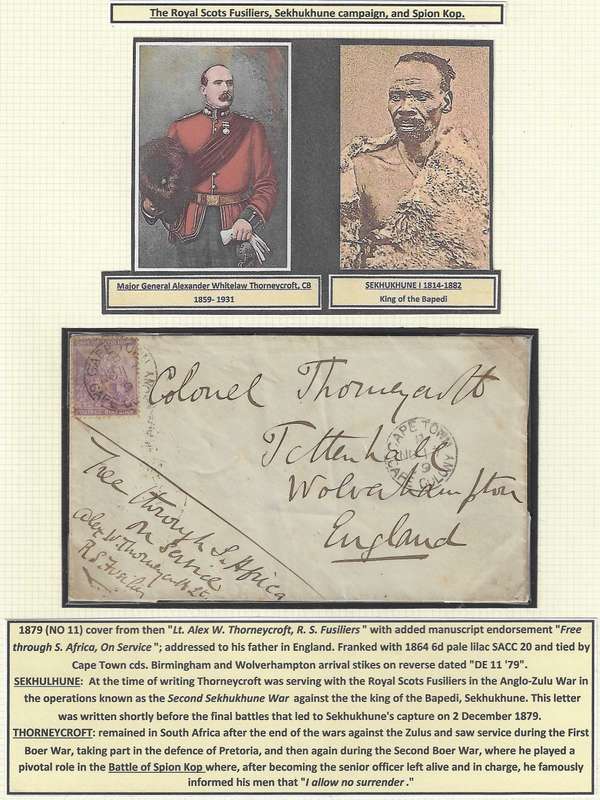 The Royal Scots Fusiliers, Sekhukhune campaign, and Spion Kop.
Major General Alexander Whitelaw Thorneycroft, CB
1859- 1931
SEKHUKHUNE I 1814-1882
King of the Bapedi
CAPE TOWN
Colonel Thorneycroft
Tettenhall
Wolverhampton
England
CAPE TOWN
NO
9
CAPE COLONY
Free through S. Africa
On Service
Alex W. Thorneycroft Lt.
R. S. Fusiliers
1879 (NO 11) cover from then "Lt. Alex W. Thorneycroft, R. S. Fusiliers" with added manuscript endorsement "Free
through S. Africa, On Service"; addressed to his father in England. Franked with 1864 6d pale lilac SACC 20 and tied by
Cape Town cds. Birmingham and Wolverhampton arrival stikes on reverse dated "DE 11 '79".
SEKHULHUNE: At the time of writing Thorneycroft was serving with the Royal Scots Fusiliers in the Anglo-Zulu War in
the operations known as the Second Sekhukhune War against the the king of the Bapedi, Sekhukhune. This letter
was written shortly before the final battles that led to Sekhukhune's capture on 2 December 1879.
THORNEYCROFT: remained in South Africa after the end of the wars against the Zulus and saw service during the First
Boer War, taking part in the defence of Pretoria, and then again during the Second Boer War, where he played a
pivotal role in the Battle of Spion Kop where, after becoming the senior officer left alive and in charge, he famously
informed his men that "I allow no surrender."